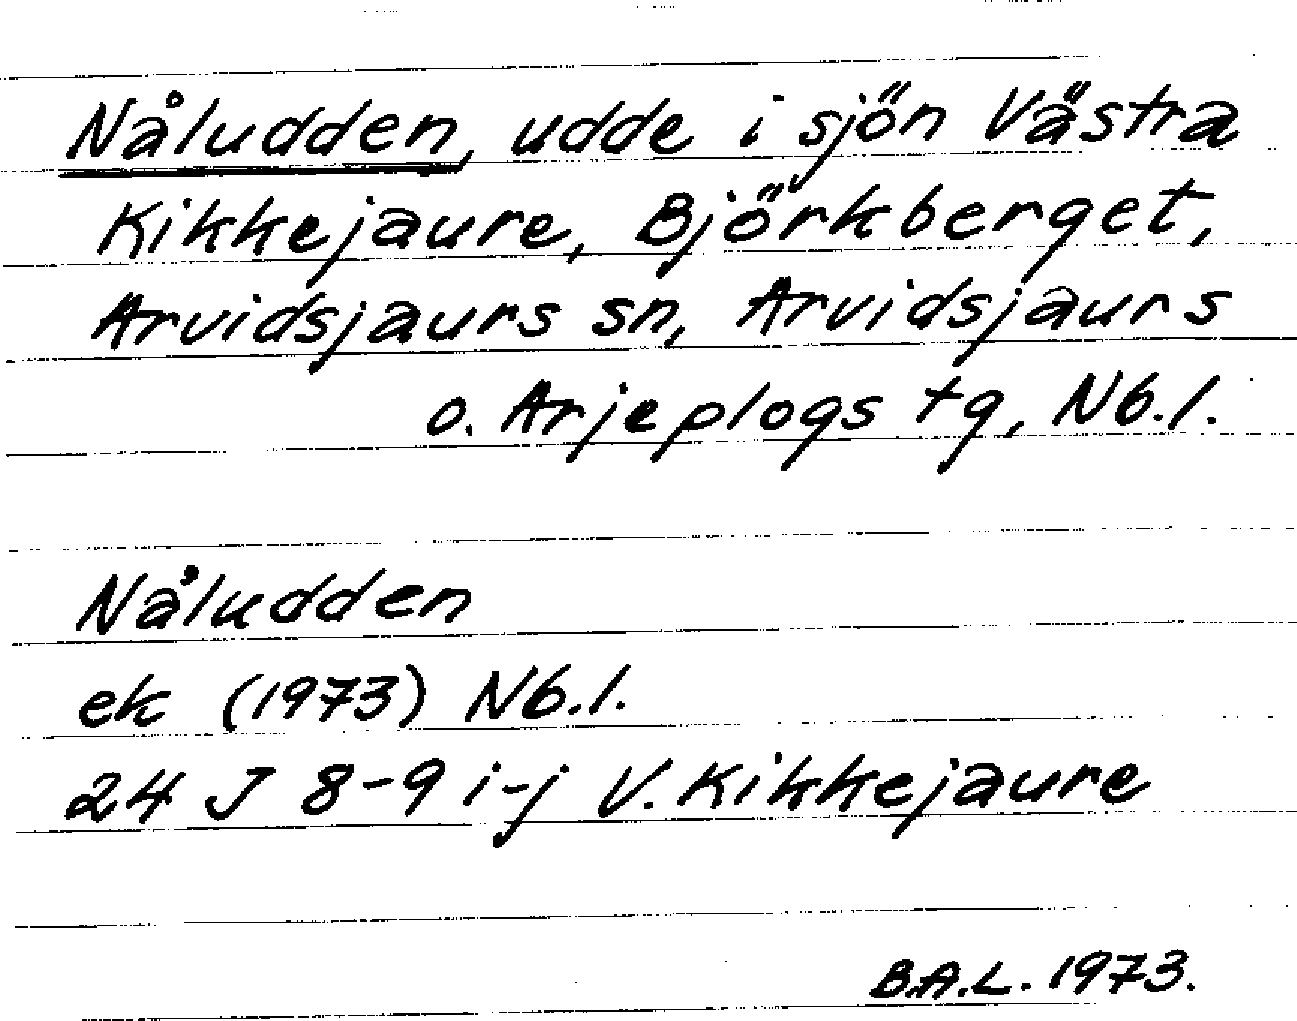 Nåludden, udde i sjön Västra
Kikkejaure, Björkberget,
Arvidsjaurs sn, Arvidsjaurs
o. Arjeplogs tg, Nb.l.
Nåludden
ek (1973) Nb.l.
24 J 8-9 i-j V. Kikkejaure
B.A.L. 1973.